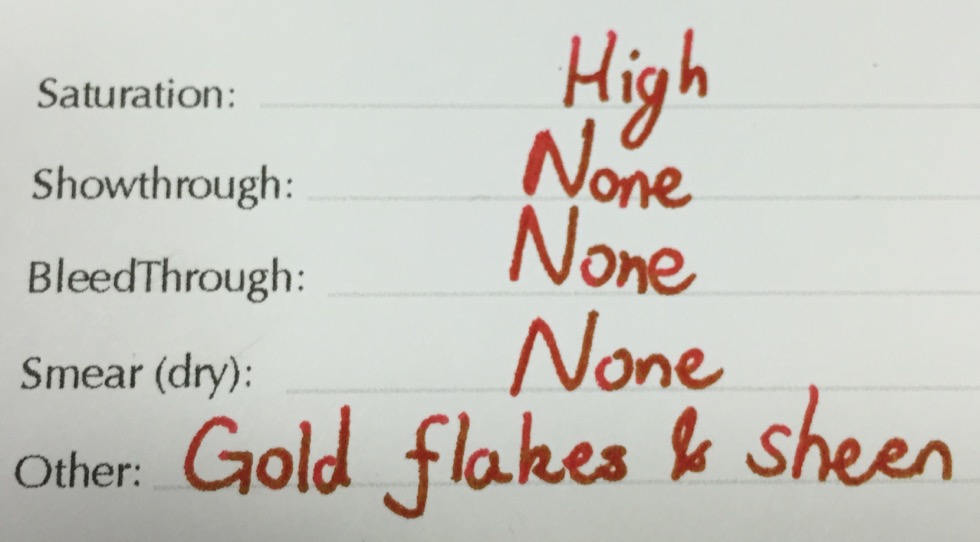 Saturation: High
Showthrough: None
BleedThrough: None
Smear (dry): None
Other: Gold flakes & sheen